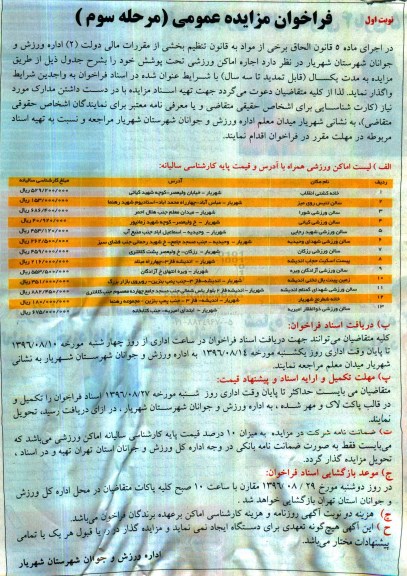 نوبت اول
فراخوان مزایده عمومی (مرحله سوم)
در اجرای ماده ۵ قانون الحاق برخی از مواد به قانون تنظیم بخشی از مقررات مالی دولت (۲) اداره ورزش و
جوانان شهرستان شهریار در نظر دارد اجاره اماکن ورزشی تحت پوشش خود را بشرح جدول ذیل از طریق
مزایده به مدت یکسال (قابل تمدید تا سه سال) با شرایط عنوان شده در اسناد فراخوان به واجدین شرایط
واگذار نماید. لذا از کلیه متقاضیان دعوت می‌گردد جهت تهیه اسناد مزایده با در دست داشتن مدارک مورد
نیاز (کارت شناسایی برای اشخاص حقیقی متقاضی و یا معرفی نامه معتبر برای نمایندگان اشخاص حقوقی
متقاضی)، به نشانی شهریار میدان معلم اداره ورزش و جوانان شهرستان شهریار مراجعه و نسبت به تهیه اسناد
مربوطه در مهلت مقرر در فراخوان اقدام نمایند.
الف) لیست اماکن ورزشی همراه با آدرس و قیمت پایه کارشناسی سالیانه:
ردیف نام مکان آدرس مبلغ کارشناسی سالیانه
۱ خانه کشتی انقلاب شهریار - خیابان ولیعصر- کوچه شهید کیانی
۲ سالن تنیس روی میز شهریار - عباس آباد- چهارراه محمد آباد- استادیوم شهید رهنما
۳ سالن ورزشی شورا شهریار - میدان معلم جنب هلال احمر
۴ سالن ورزشی کیانی شهریار - خ ولیعصر- کوچه شهید
۵ سالن ورزشی شهید رجایی شهریار - وحیدیه - اسماعیل آباد جنب منبع آب
۶ سالن ورزشی شهدای وحیدیه شهریار - وحیدیه - جنب مسجد جامع- خ شهید رجمانی جنب فضای سبز
۷ سالن ورزشی رزکان شهریار - رزکان- خ ولیعصر پشت کلانتری
۸ پیست اسکیت حجاب اندیشه شهریار - اندیشه فاز ۳- چهارراه میلاد
۹ سالن ورزشی آزادگان ویره شهریار - ویره انتهای خ آزادگان
۱۰
۱۱ سالن ورزشی شهدای گمنام اندیشه
۱۲ خانه شطرنج شهریار
۱۳ سالن ورزشی ذوالفقار امیریه شهریار - ابتدای امیریه- جنب کتابخانه
ب) دریافت اسناد فراخوان:
کلیه متقاضیان می‌توانند جهت دریافت اسناد فراخوان در ساعات اداری از روز چهارشنبه مورخه ۱۳۹۶/۰۸/۱۰
تا پایان وقت اداری روز یکشنبه مورخه ۱۳۹۶/۰۸/۱۴ به اداره ورزش و جوانان شهرستان شهریار به نشانی
شهریار میدان معلم مراجعه نمایند.
پ) مهلت تکمیل و ارایه اسناد و پیشنهاد قیمت:
متقاضیان می بایست حداکثر تا پایان وقت اداری روز شنبه مورخه ۱۳۹۶/۰۸/۲۷ اسناد فراخوان را تکمیل و
در قالب پاکت لاک و مهر شده ، به اداره ورزش و جوانان شهرستان شهریار ، در ازای دریافت رسید، تحویل
نمایند.
ت) ضمانت نامه شرکت در مزایده به میزان ۱۰ درصد قیمت پایه کارشناسی سالیانه اماکن ورزشی می‌باشد که
می‌بایست فقط به صورت ضمانت نامه بانکی در وجه اداره کل ورزش و جوانان استان تهران تهیه و در اسناد ،
تحویل مزایده گذار گردد.
ج) موعد بازگشایی اسناد فراخوان:
در روز دوشنبه مورخ ۲۹ / ۰۸ / ۱۳۹۶ مقارن با ساعت ۱۰ صبح کلیه پاکات متقاضیان در محل اداره کل ورزش
و جوانان استان تهران بازگشایی خواهد شد .
چ) هزینه دو نوبت آگهی روزنامه و هزینه کارشناسی اماکن برعهده برندگان فراخوان می‌باشد.
ح) این آگهی هیچ‌گونه تعهدی برای دستگاه ایجاد نمی نماید و مزایده گذار در رد یا قبول هر یک یا تمامی
پیشنهادات مختار می‌باشد.
اداره ورزش و جوانان شهرستان شهریار